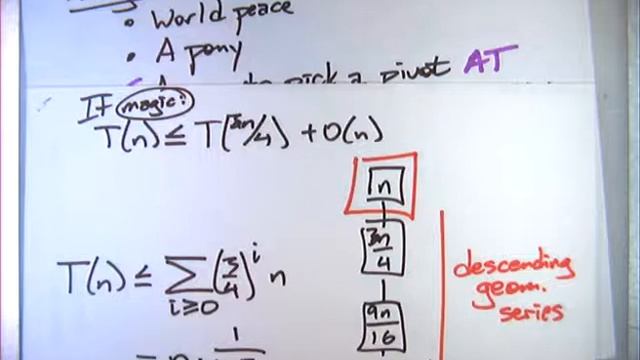 • World peace
• A pony
to pick a pivot AT
If magic:
T(n) ≤ T(3n/4) + O(n)
n
3n/4
T(n) ≤ ∑ i≥0 (3/4)^i n
9n/16
descending
geom.
series
1